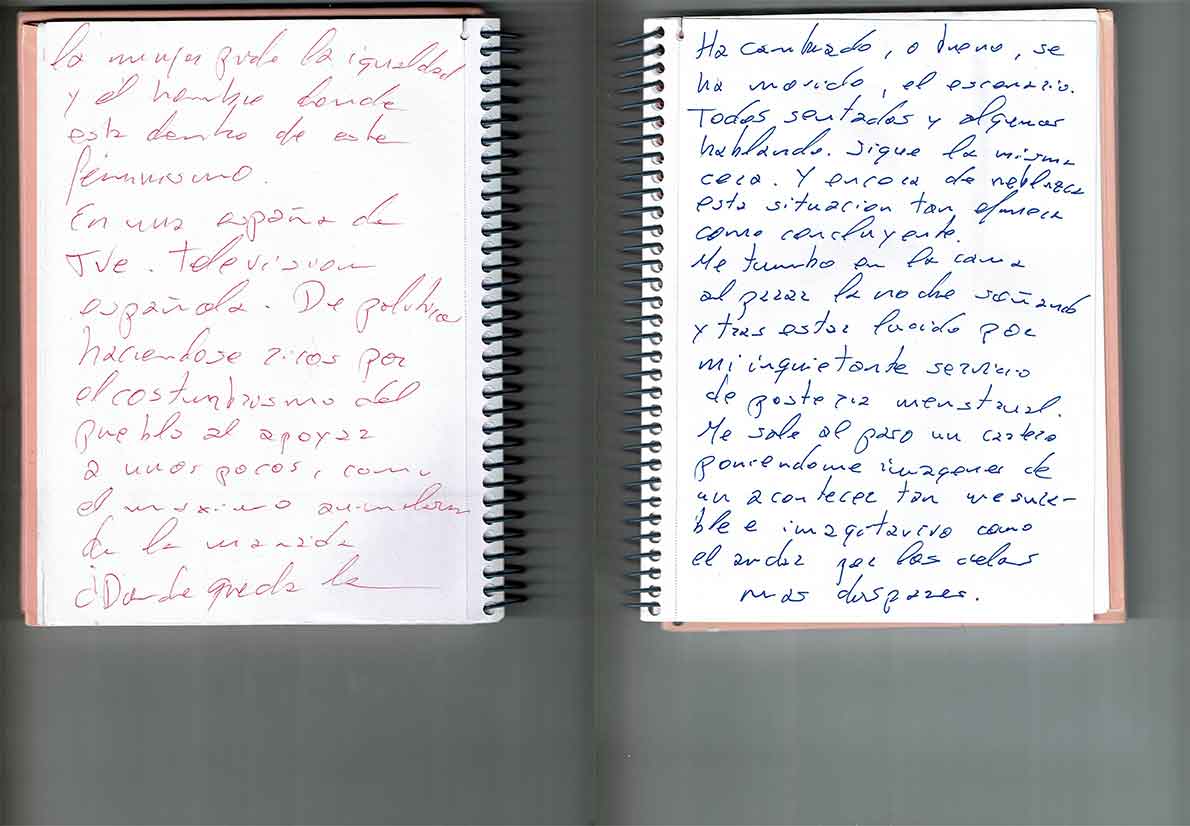 la mujer pide la igualdad
y el hombre donde
esta dentro de este
feminismo.
En una españa de
TVe. Television
española. De politica
haciendose ricos por
el costumbrismo del
pueblo al apoyar
a unos pocos, como
el maximo
de la manada
¿Donde queda la
Ha cambiado, o bueno, se
ha movido, el escenario.
Todos sentados y algunos
hablando. Sigue la misma
cera. Y encora de
esta situacion tan
como concluyente.
Me tumbo en la cama
al pasar la noche soñando
y tras estar lucido por
mi inquietante servicio
de posteria menstrual.
Me sale al paso un cartero
poniendome imagenes de
un acontecer tan
ble e imagitavivo como
el andar por los cielos
mas dispares.